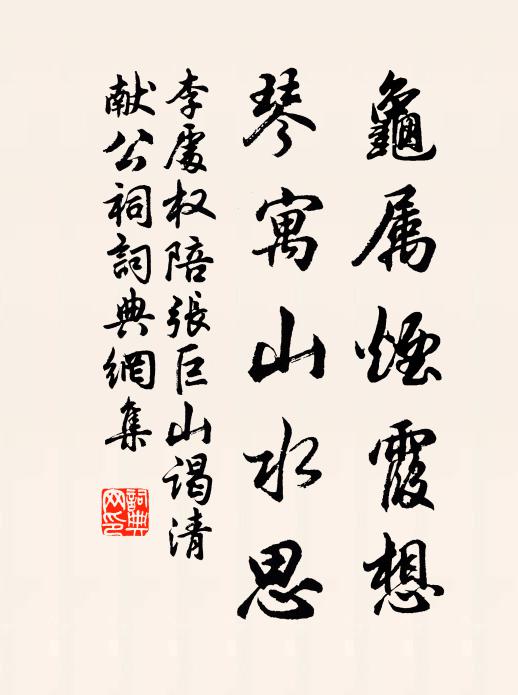 龜属煙霞想
琴寓山水思
李處权陪張巨山謁清
献公祠詞典網集
詞典網印